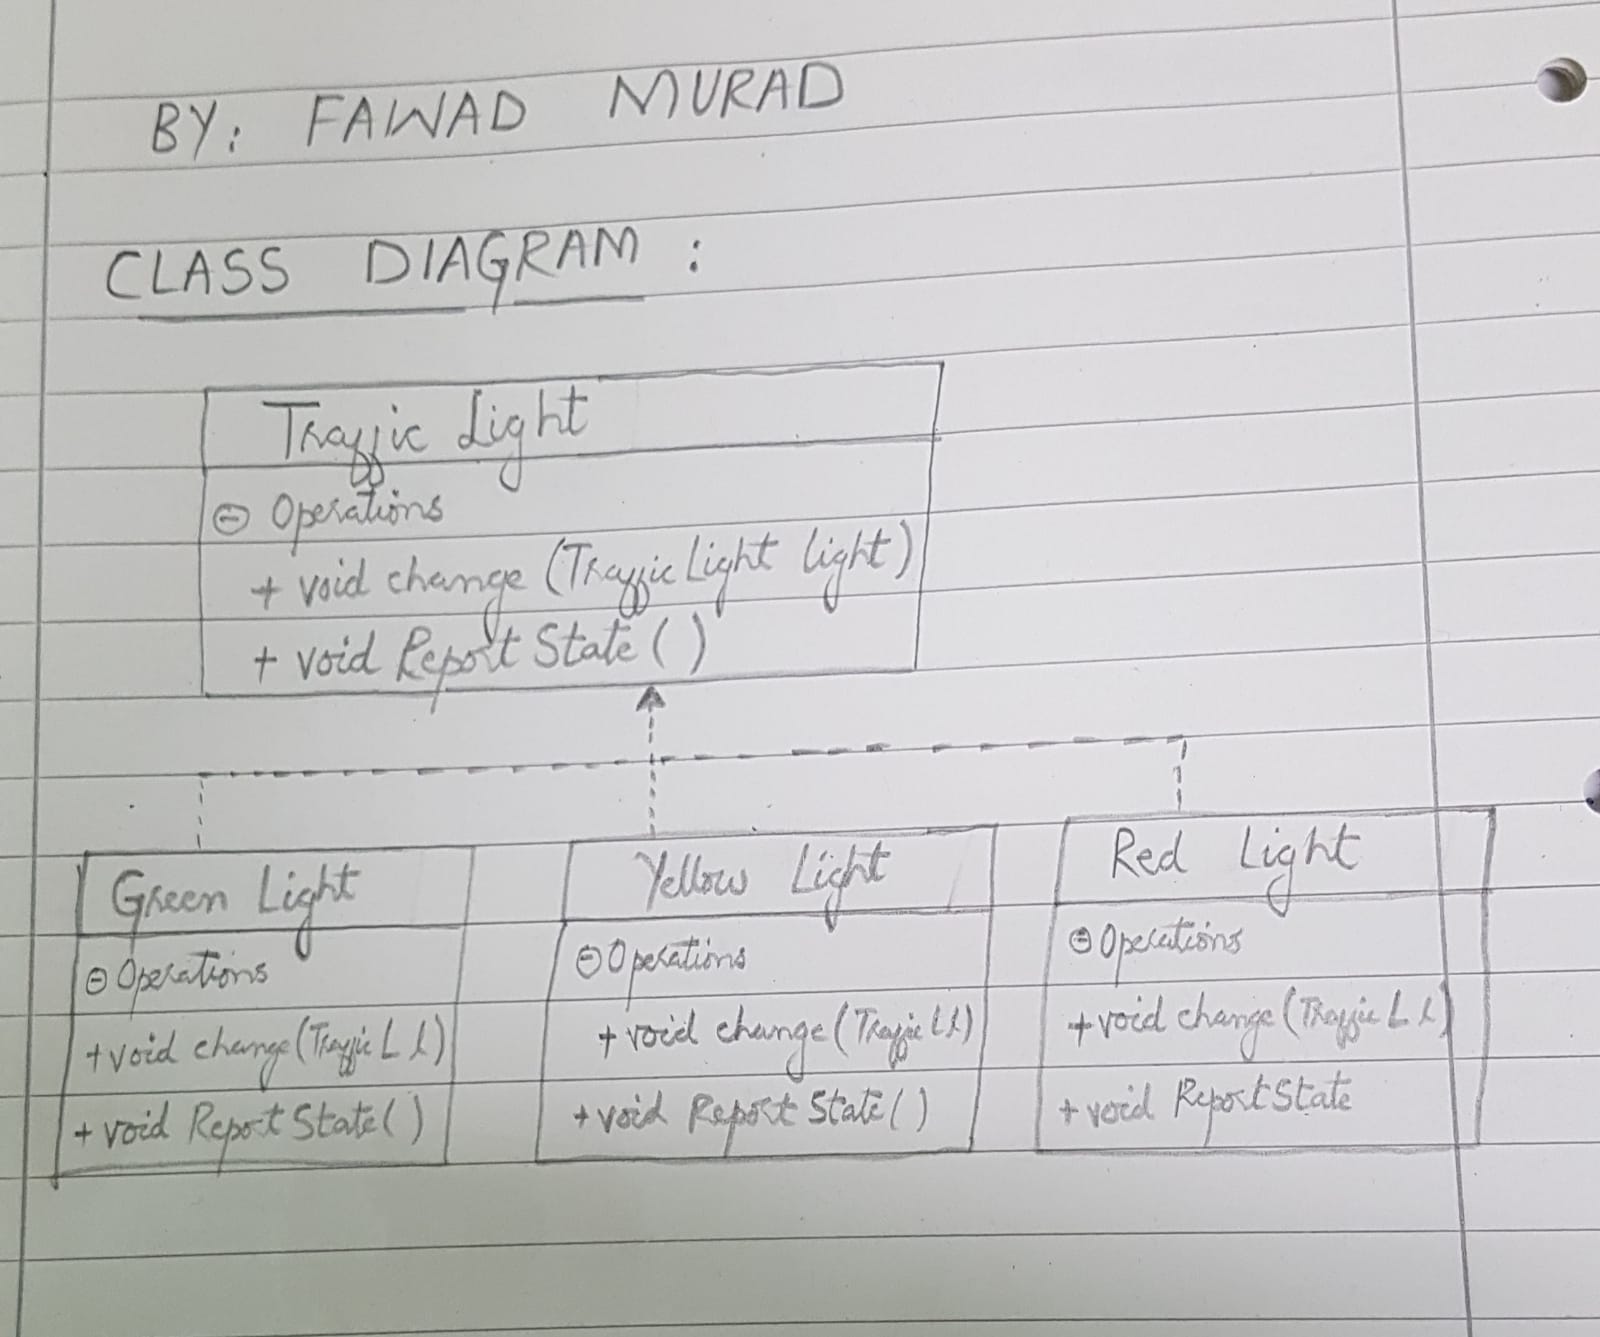 BY: FAWAD MURAD
CLASS DIAGRAM :
Traffic Light
⊖ Operations
+ void change (Traffic Light light)
+ void Report State ( )
Green Light
⊖ Operations
+ void change (Traffic L l)
+ void Report State ( )
Yellow Light
⊖ Operations
+ void change (Traffic L l)
+ void Report State ( )
Red Light
⊖ Operations
+ void change (Traffic L l)
+ void Report State